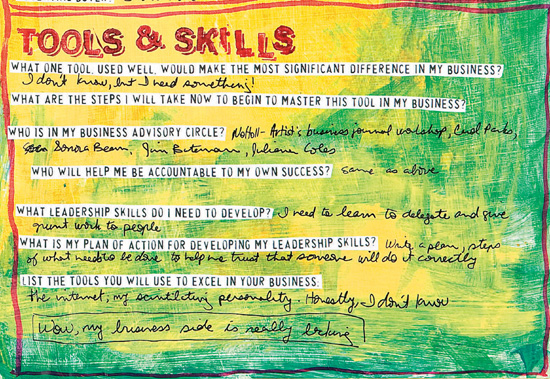 TOOLS & SKILLS
WHAT ONE TOOL, USED WELL, WOULD MAKE THE MOST SIGNIFICANT DIFFERENCE IN MY BUSINESS?
I don't know, but I need something!
WHAT ARE THE STEPS I WILL TAKE NOW TO BEGIN TO MASTER THIS TOOL IN MY BUSINESS?
WHO IS IN MY BUSINESS ADVISORY CIRCLE? Artist's business journal workshop, Carol Parks,
Jim Bateman, Juliana Coles
WHO WILL HELP ME BE ACCOUNTABLE TO MY OWN SUCCESS? same as above
WHAT LEADERSHIP SKILLS DO I NEED TO DEVELOP? I need to learn to delegate and give
grunt work to people
WHAT IS MY PLAN OF ACTION FOR DEVELOPING MY LEADERSHIP SKILLS? Write a plan, steps
of what needs to be done to help me trust that someone will do it correctly
LIST THE TOOLS YOU WILL USE TO EXCEL IN YOUR BUSINESS:
the internet, my scintillating personality. Honestly, I don't know
Wow, my business side is really lacking